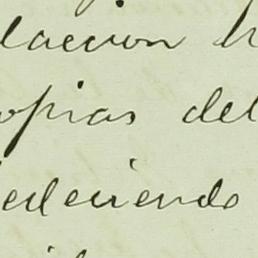 laccion h
opias del
edeciendo